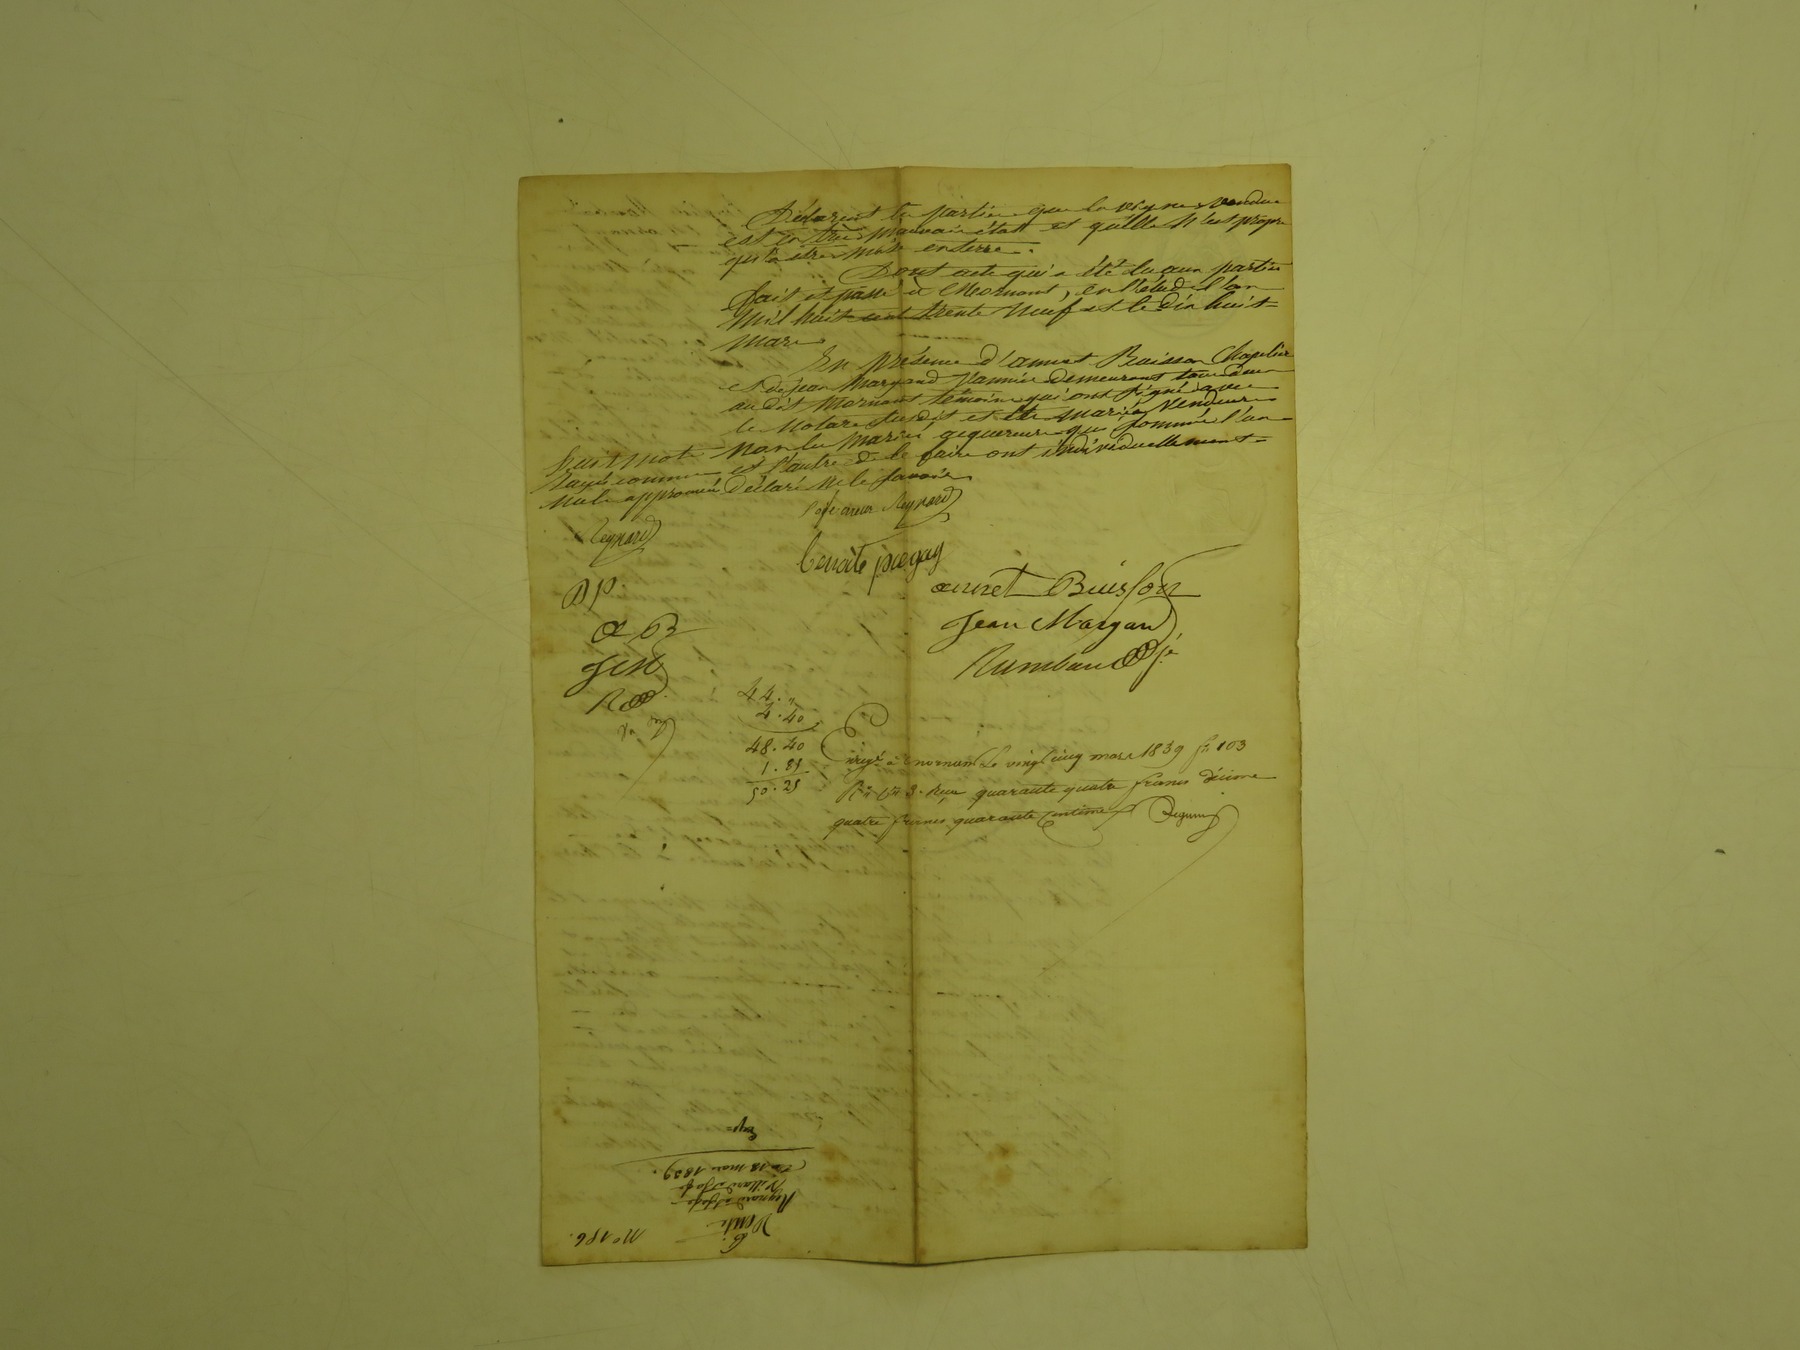 Déclarent les parties que la vigne vendue
est en très mauvais état et qu'elle n'est propre
qu'à être mise en terre.
Dont acte qui a été lu aux parties
fait et passé à Mornant, en l'étude l'an
mil huit cent trente neuf et le dix huit
mars
En présence d'annet Buisson Chapelier
et de Jean Margand Vannier demeurant tous deux
au dit Mornant témoins qui ont signé avec
le Notaire susdit et les mariés Vendeurs
non les mariés acquereurs qui sommés l'un
et l'autre de le faire ont individuellement
déclaré ne le savoir
huit mots
rayés comme
nuls approuvés
Reynard
Reynard
Benoite
BP.
annet Buisson
Jean Margand
Rambaud
aB
JM
R
44. "
4. 40
48. 40
1. 85
50. 25
Enregé à mornant Le vingt cinq mars 1839 fo 103
Ro Ce 3. Reçu quarante quatre francs décime
quatre francs quarante centimes
Exp
Du 18 mars 1839.
Villard à
Reynard à
Vente
6.
No 186.